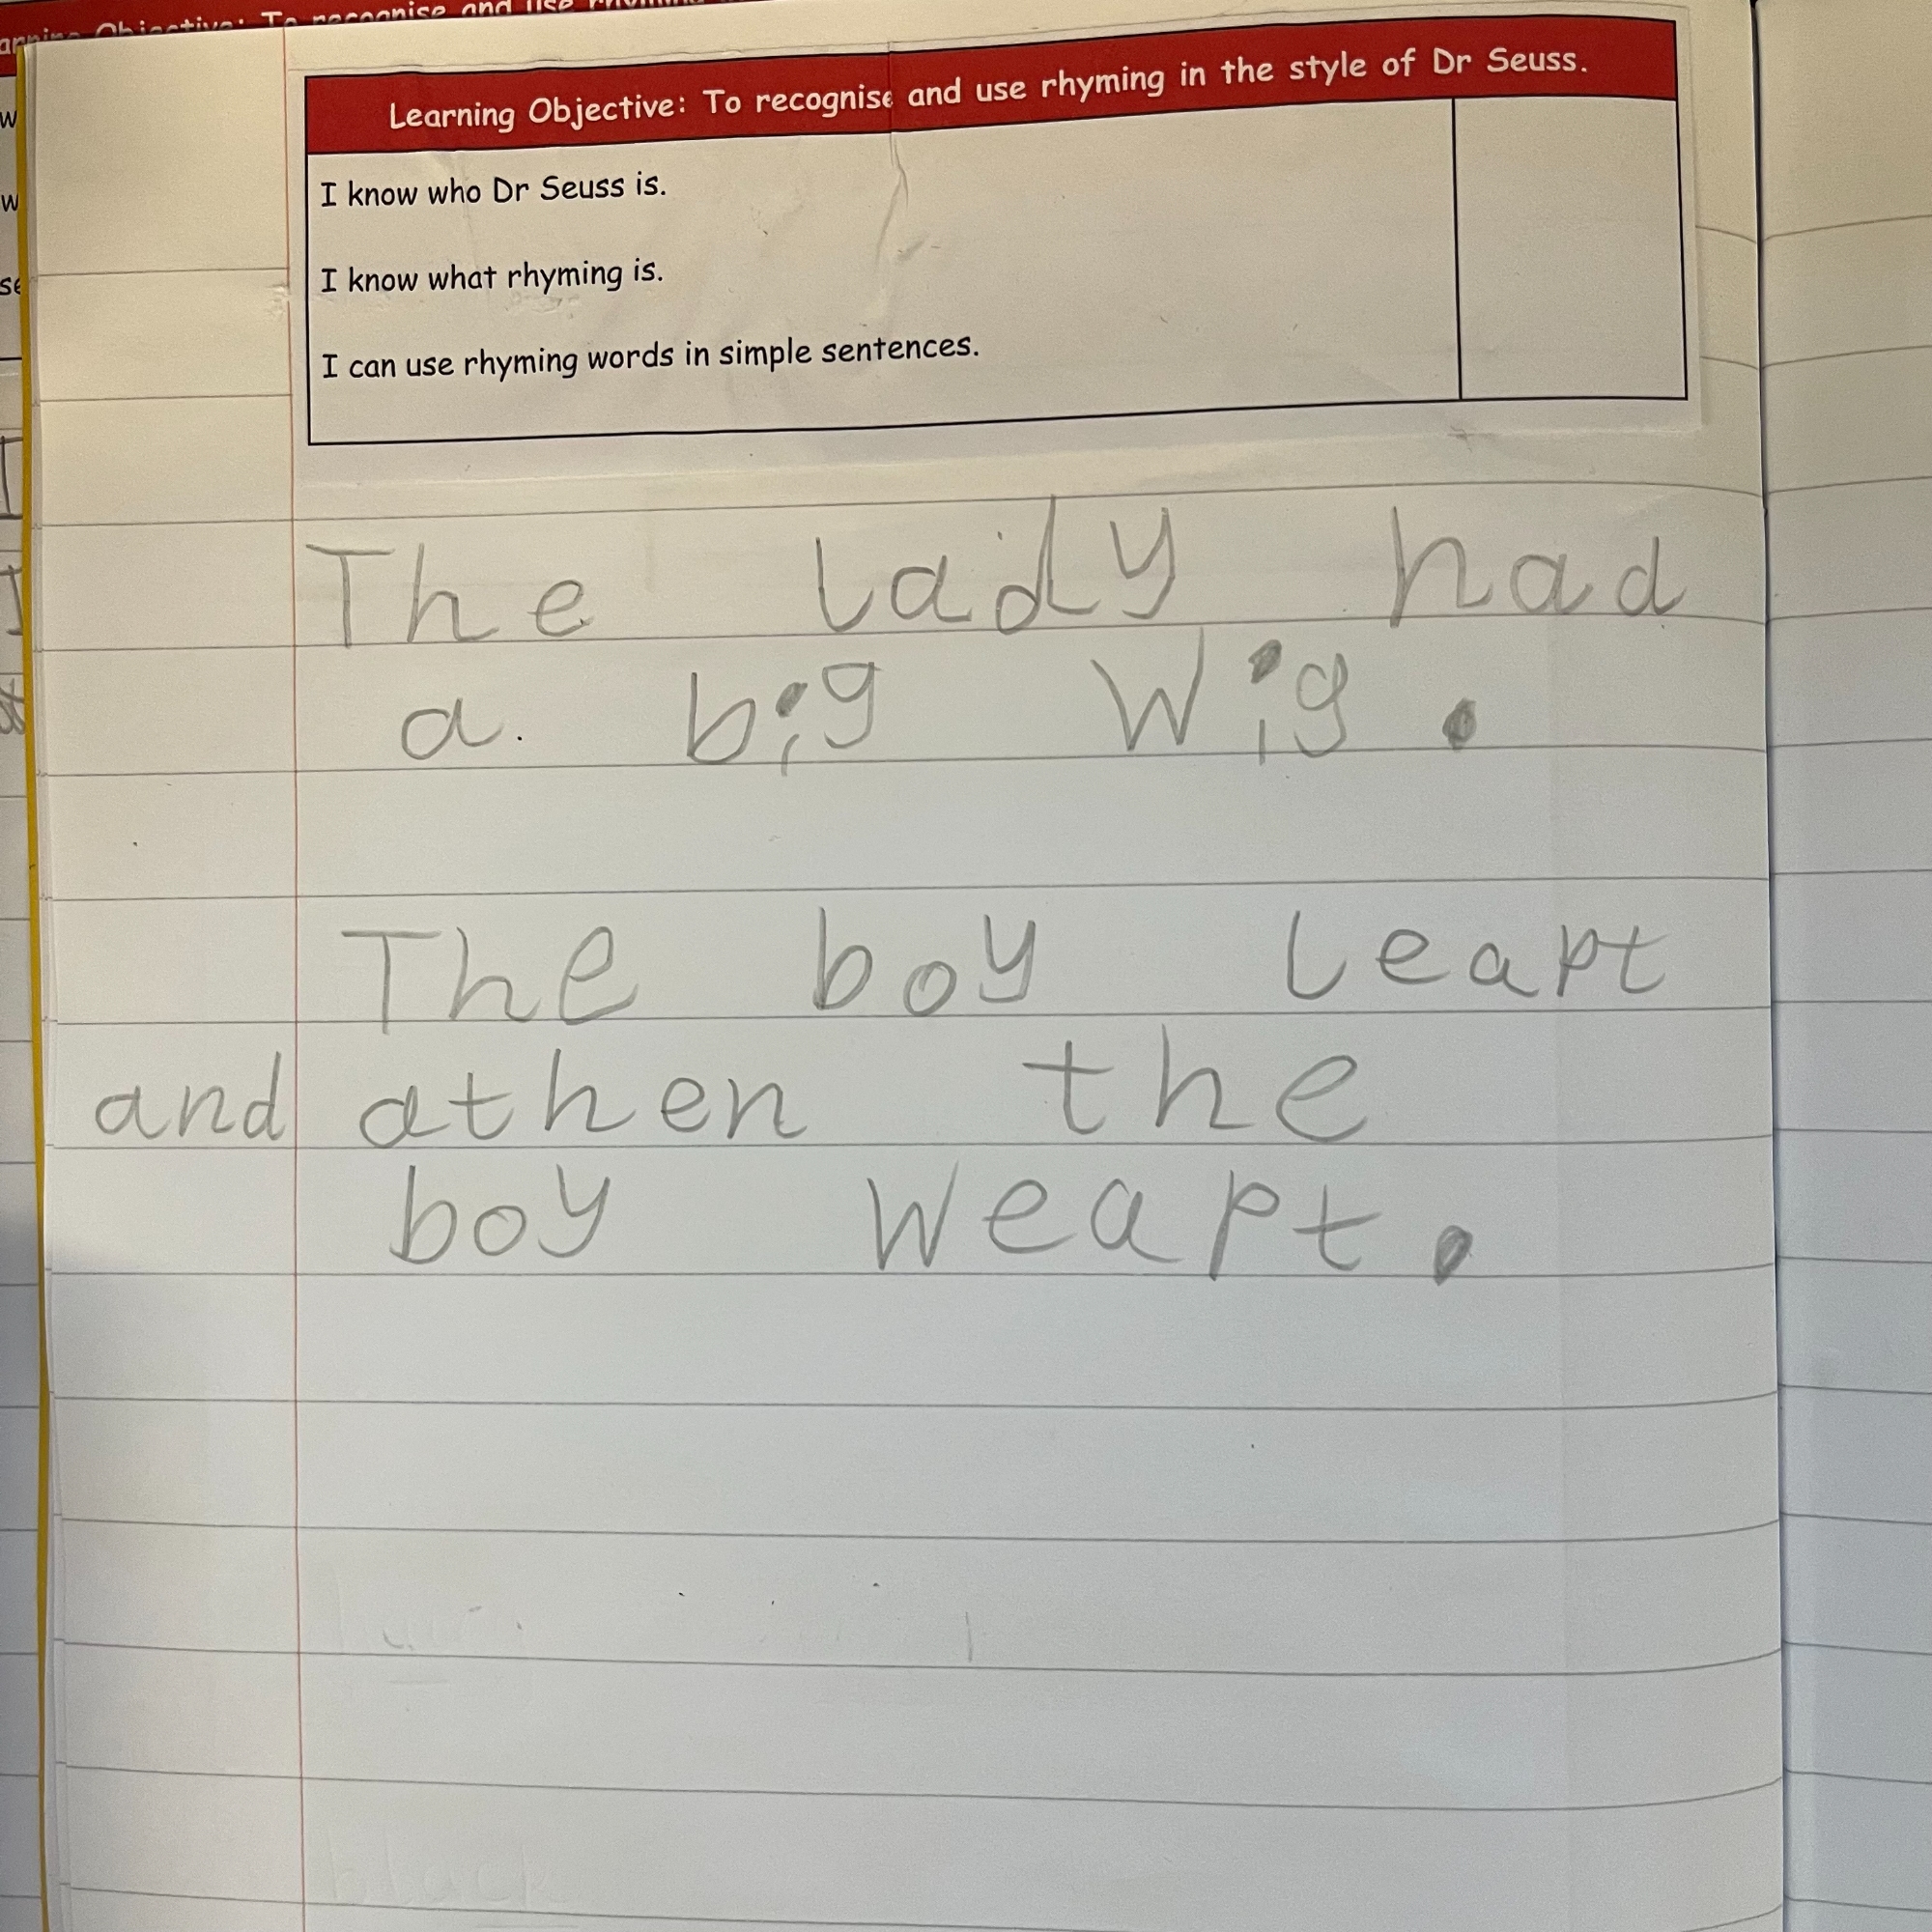 Learning Objective: To recognise and use rhyming in the style of Dr Seuss.
I know who Dr Seuss is.
I know what rhyming is.
I can use rhyming words in simple sentences.
The lady had
a big Wig.
The boy leapt
and athen the
boy weapt.